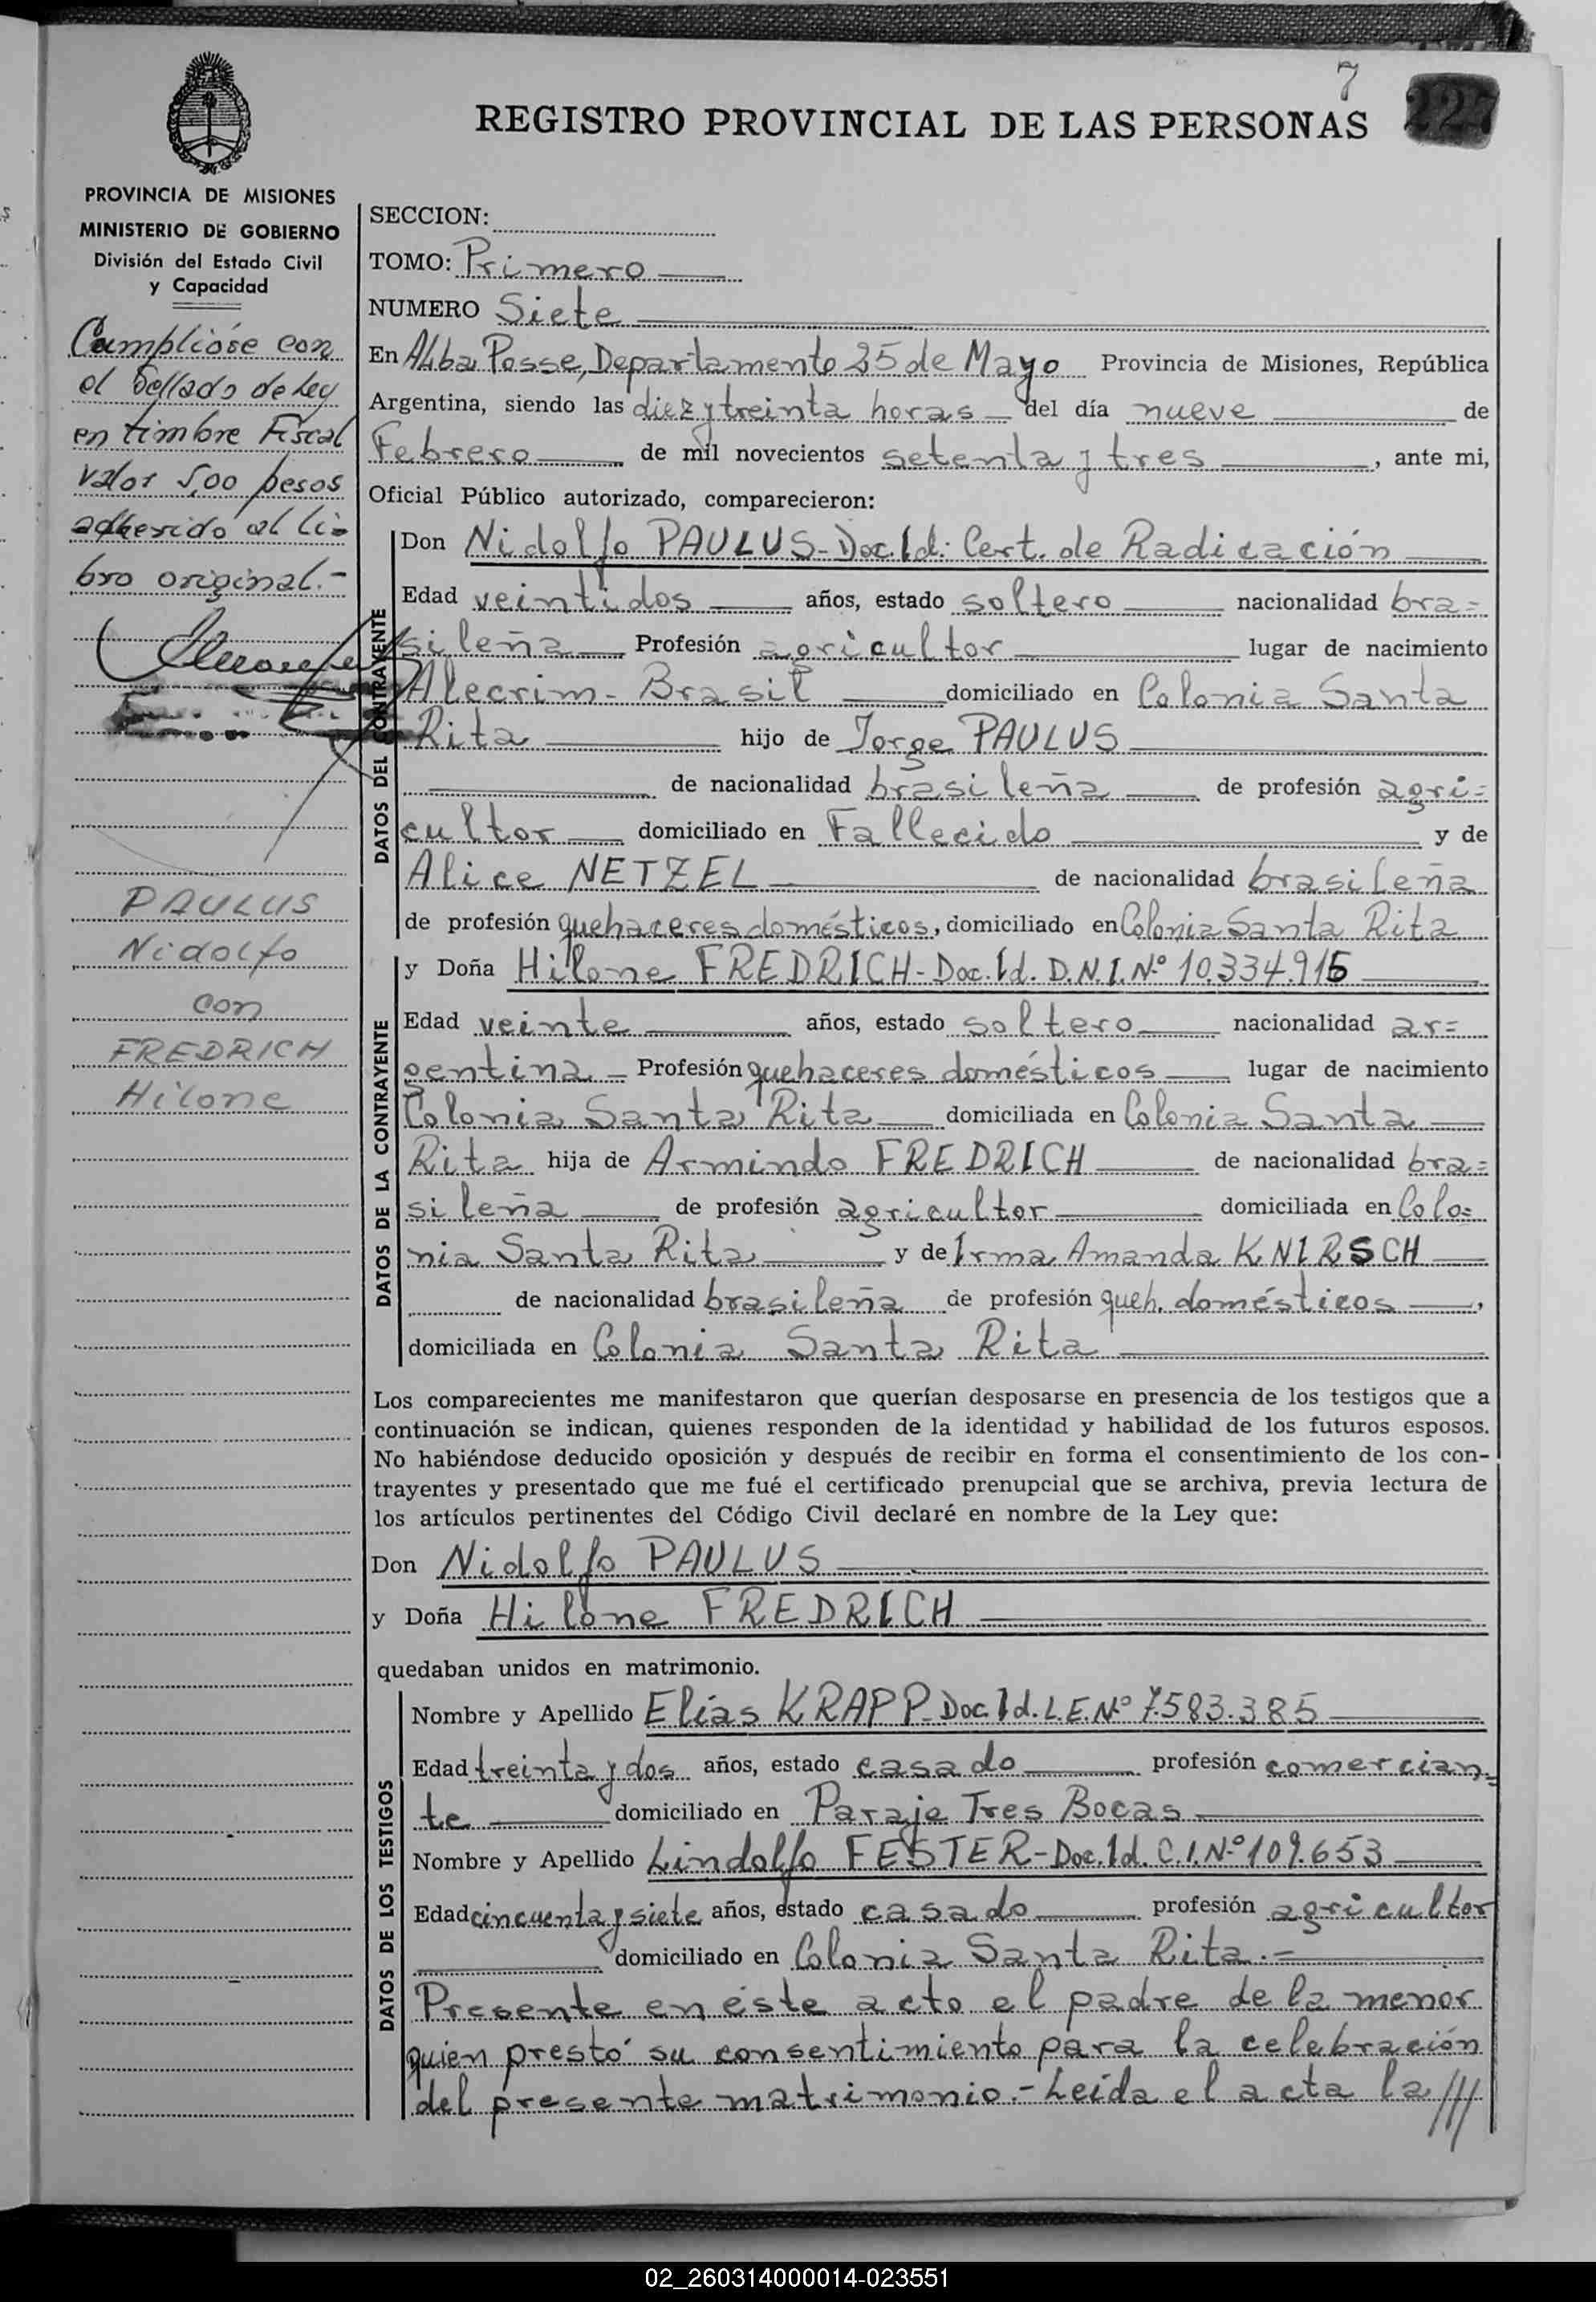 7
227
REGISTRO PROVINCIAL DE LAS PERSONAS
PROVINCIA DE MISIONES
MINISTERIO DE GOBIERNO
División del Estado Civil
y Capacidad
Cumplióse con
el Sellado de Ley
en timbre Fiscal
valor 5,00 pesos
adherido al li=
bro original.-
PAULUS
Nidolfo
con
FREDRICH
Hilone
SECCION:
TOMO: Primero
NUMERO Siete
En Alba Posse, Departamento 25 de Mayo Provincia de Misiones, República
Argentina, siendo las diez y treinta horas del día nueve de
Febrero de mil novecientos setenta y tres, ante mi,
Oficial Público autorizado, comparecieron:
DATOS DEL CONTRAYENTE
Don Nidolfo PAULUS-Doc.Id: Cert. de Radicación
Edad veintidos años, estado soltero nacionalidad bra=
sileña Profesión agricultor lugar de nacimiento
Alecrim- Brasil domiciliado en Colonia Santa
Rita hijo de Jorge PAULUS
de nacionalidad brasileña de profesión agri=
cultor domiciliado en Fallecido y de
Alice NETZEL de nacionalidad brasileña
de profesión quehaceres domésticos, domiciliado en Colonia Santa Rita
DATOS DE LA CONTRAYENTE
y Doña Hilone FREDRICH-Doc.Id. D.N.I.Nº 10.334.915
Edad veinte años, estado soltero nacionalidad ar=
gentina Profesión quehaceres domésticos lugar de nacimiento
Colonia Santa Rita domiciliada en Colonia Santa
Rita hija de Armindo FREDRICH de nacionalidad bra=
sileña de profesión agricultor domiciliada en Colo=
nia Santa Rita y de Irma Amanda KNIRSCH
de nacionalidad brasileña de profesión queh. domésticos,
domiciliada en Colonia Santa Rita
Los comparecientes me manifestaron que querían desposarse en presencia de los testigos que a
continuación se indican, quienes responden de la identidad y habilidad de los futuros esposos.
No habiéndose deducido oposición y después de recibir en forma el consentimiento de los con-
trayentes y presentado que me fué el certificado prenupcial que se archiva, previa lectura de
los artículos pertinentes del Código Civil declaré en nombre de la Ley que:
Don Nidolfo PAULUS
y Doña Hilone FREDRICH
quedaban unidos en matrimonio.
DATOS DE LOS TESTIGOS
Nombre y Apellido Elías KRAPP-Doc.Id.L.E.Nº 7.583.385
Edad treinta y dos años, estado casado profesión comercian=
te domiciliado en Paraje Tres Bocas
Nombre y Apellido Lindolfo FESTER-Doc.Id. C.I.Nº 109.653
Edad cincuenta y siete años, estado casado profesión agricultor
domiciliado en Colonia Santa Rita.=
Presente en éste acto el padre de la menor
quien prestó su consentimiento para la celebración
del presente matrimonio.-Leída el acta la ///
02_260314000014-023551